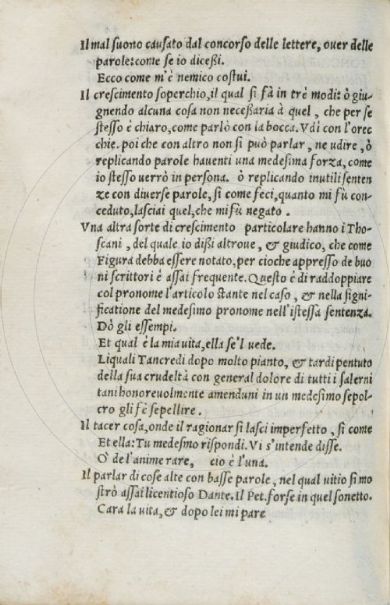 Il mal suono causato dal concorso delle lettere, ouer delle
parole: come se io diceßi.
Ecco come m'è nemico costui.
Il crescimento soperchio, il qual si fà in trè modi: ò giu-
gnendo alcuna cosa non neceßaria à quel, che per se
stesso è chiaro, come parlò con la bocca. Vdì con l'orec
chie. poi che con altro non si può parlar, ne udire, ò
replicando parole hauenti una medesima forza, come
io stesso uerrò in persona. ò replicando inutili senten
ze con diuerse parole, sì come feci, quanto mi fù con-
ceduto, lasciai quel, che mi fù negato.
Vna altra sorte di crescimento particolare hanno i Tho-
scani, del quale io dißi altroue, & giudico, che come
Figura debba essere notato, per cioche appresso de buo
ni scrittori è assai frequente. Questo è di raddoppiare
col pronome l'articolo stante nel caso, & nella signi-
ficatione del medesimo pronome nell'istessa sentenza.
Dò gli essempi.
Et qual è la mia uita, ella se'l uede.
Liquali Tancredi dopo molto pianto, & tardi pentuto
della sua crudeltà con general dolore di tutti i salerni
tani honoreuolmente amenduni in un medesimo sepol-
cro gli fè sepellire.
Il tacer cosa, onde il ragionar si lasci imperfetto, sì come
Et ella: Tu medesmo rispondi. Vi s'intende disse.
O' de l'anime rare, ciò è l'una.
Il parlar di cose alte con basse parole, nel qual uitio si mo
strò assai licentioso Dante. Il Pet. forse in quel sonetto.
Cara la uita, & dopo lei mi pare